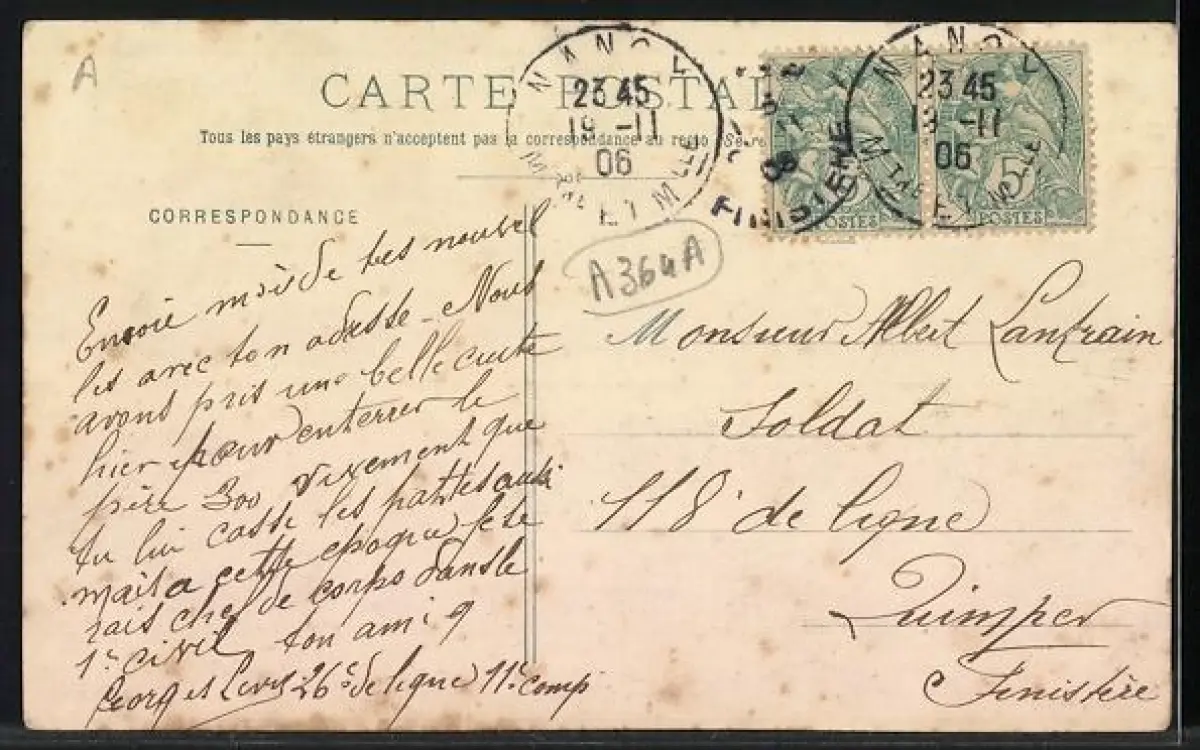 A
CARTE POSTALE
Tous les pays étrangers n'acceptent pas la correspondance au recto (Se re
NANC
23 45
19 -11
06
MTHE ET MLLE
NANC
23 45
19 -11
06
FINISTERE
5
POSTES
POSTES
A364A
CORRESPONDANCE
Envoie mois de tes nouvel
les avec ton adresse - Nous
avons pris une belle cuite
hier pour enterrer le
père 300 vivement que
tu lui casse les pattes aussi
mais a cette epoque je se
rais chef de corps dans le
1er civil, ton ami 9
Georges 26e de ligne 11e comp
Monsieur Albert Lantrain
Soldat
118e de ligne
Quimper
Finistère